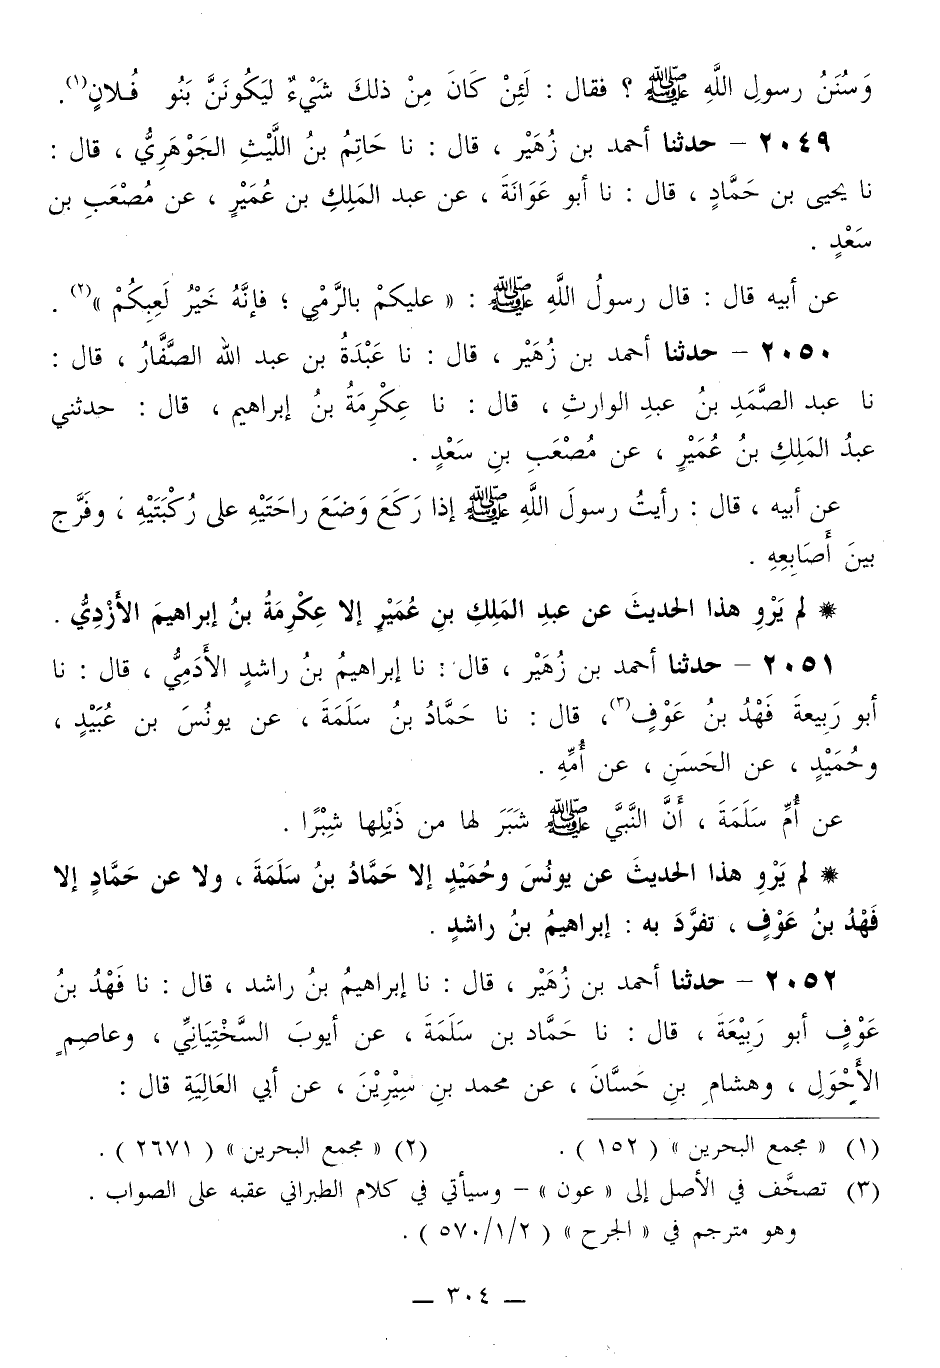 وَسُنَنُ رسولِ اللَّهِ ﷺ ؟ فقال : لَئِنْ كَانَ مِنْ ذلكَ شَيْءٌ ليَكُونَنَّ بَنُو فُـلانٍ(١).
٢٠٤٩ – حدثنا أحمد بن زُهَيْر ، قال : نا حَاتِمُ بنُ اللَّيْثِ الجَوْهَرِيُّ ، قال :
نا يحيى بن حَمَّادٍ ، قال : نا أبو عَوَانَةَ ، عن عبد المَلِكِ بن عُمَيْرٍ ، عن مُصْعَبِ بن
سَعْدٍ .
عن أبيه قال : قال رسولُ اللَّهِ ﷺ : « عليكمْ بالرَّمْيِ ؛ فإنَّهُ خَيْرُ لَعِبِكُمْ »(٢) .
٢٠٥٠ – حدثنا أحمد بن زُهَيْر ، قال : نا عَبْدَةُ بن عبد الله الصَّفَّارُ ، قال :
نا عبد الصَّمَدِ بنُ عبدِ الوارثِ ، قال : نا عِكْرِمَةُ بنُ إبراهيم ، قال : حدثني
عبدُ المَلِكِ بنُ عُمَيْرٍ ، عن مُصْعَبِ بنِ سَعْدٍ .
عن أبيه ، قال : رأيتُ رسولَ اللَّهِ ﷺ إذا رَكَعَ وَضَعَ راحَتَيْهِ على رُكْبَتَيْهِ ، وفَرَّج
بينَ أَصَابِعِهِ .
* لم يَرْوِ هذا الحديثَ عن عبدِ المَلِكِ بنِ عُمَيْرٍ إلا عِكْرِمَةُ بنُ إبراهيمَ الأَزْدِيُّ .
٢٠٥١ – حدثنا أحمد بن زُهَيْر ، قال : نا إبراهيمُ بنُ راشدٍ الأَدَمِيُّ ، قال : نا
أبو رَبِيعةَ فَهْدُ بنُ عَوْفٍ(٣)، قال : نا حَمَّادُ بنُ سَلَمَةَ ، عن يونُسَ بن عُبَيْدٍ ،
وحُمَيْدٍ ، عن الحَسَنِ ، عن أُمِّهِ .
عن أُمِّ سَلَمَةَ ، أَنَّ النَّبَّي ﷺ شَبَرَ لها من ذَيْلِها شِبْرًا .
* لم يَرْوِ هذا الحديثَ عن يونُسَ وحُمَيْدٍ إلا حَمَّادُ بنُ سَلَمَةَ ، ولا عن حَمَّادٍ إلا
فَهْدُ بنُ عَوْفٍ ، تفرَّدَ به : إبراهيمُ بنُ راشدٍ .
٢٠٥٢ – حدثنا أحمد بن زُهَيْر ، قال : نا إبراهيمُ بنُ راشد ، قال : نا فَهْدُ بنُ
عَوْفٍ أبو رَبِيْعَةَ ، قال : نا حَمَّاد بن سَلَمَةَ ، عن أيوبَ السَّخْتِيَانِّي ، وعاصِمٍ
الأَحْوَلِ ، وهشامِ بنِ حَسَّانَ ، عن محمد بنِ سِيْرِيْنَ ، عن أبي العَالِيَةِ قال :
(١) « مجمع البحرين » ( ١٥٢ ) . (٢) « مجمع البحرين » ( ٢٦٧١ ) .
(٣) تصحَّف في الأصل إلى « عون » – وسيأتي في كلام الطبراني عقبه على الصواب .
وهو مترجم في « الجرح » ( ٥٧٠/١/٢ ) .
— ٣٠٤ —